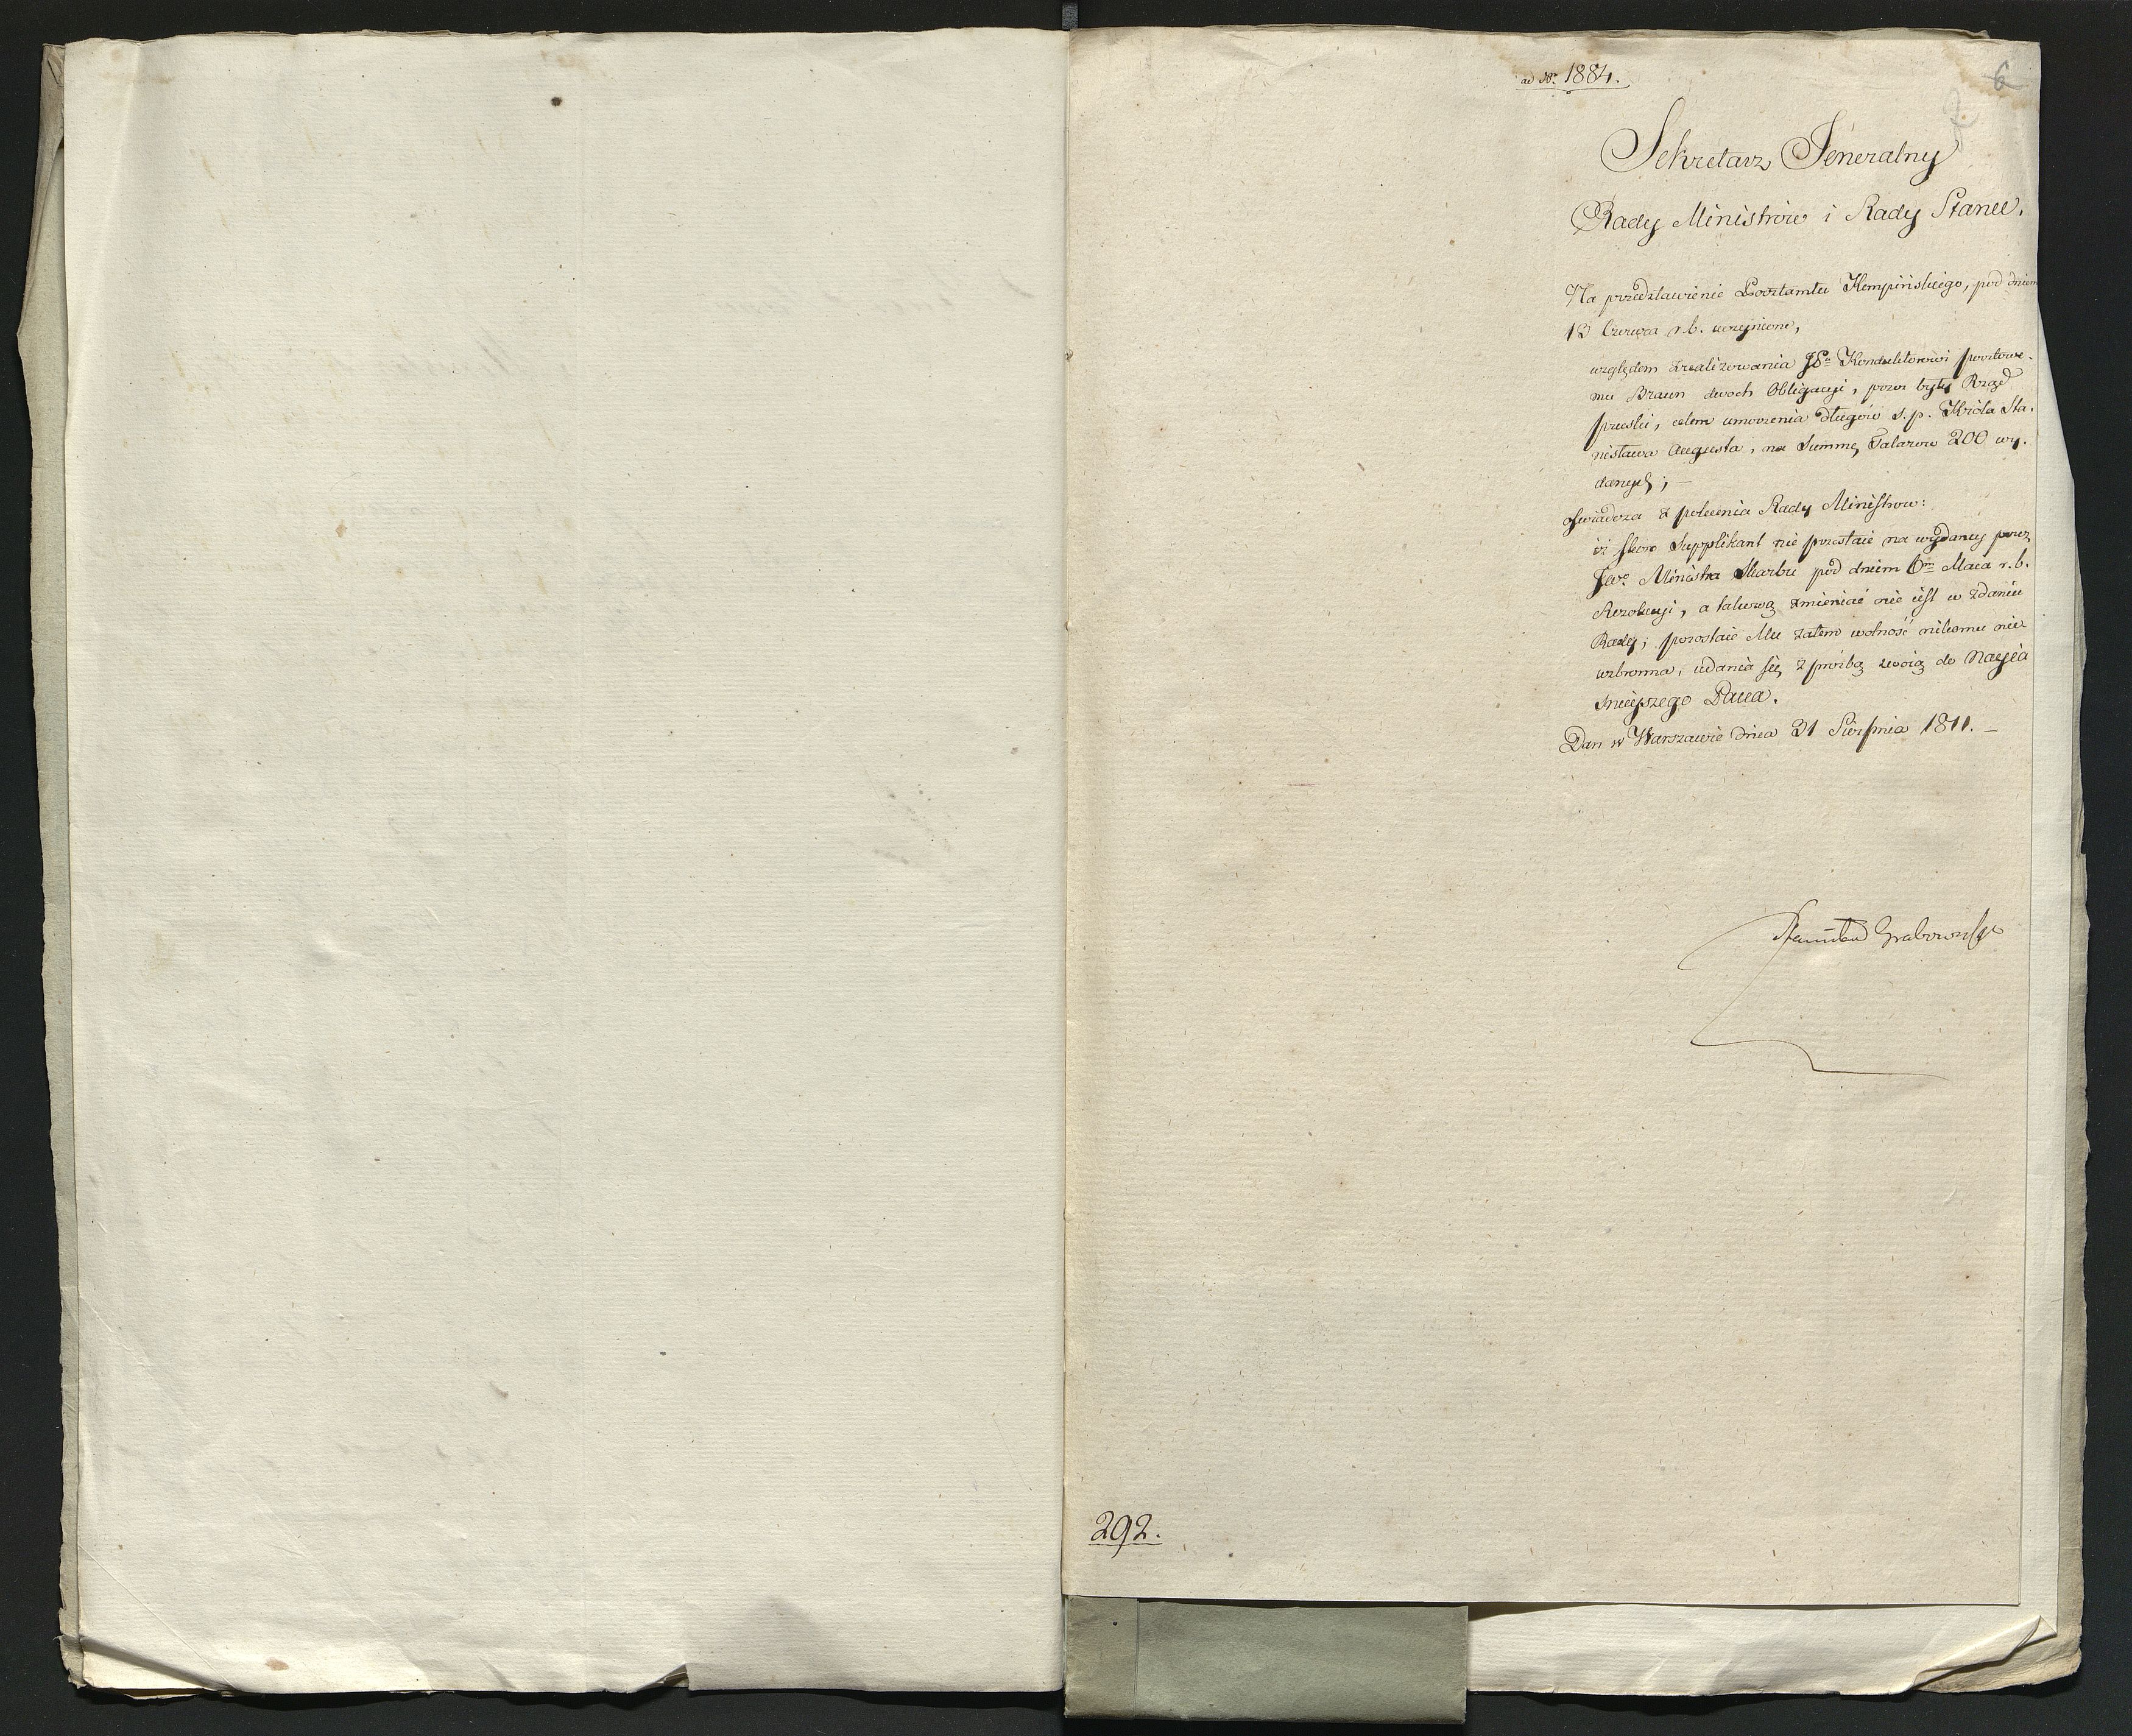 ad Nr. 1884.
6
Sekretarz Jeneralny
Rady Ministrów i Rady Stanu.
Na przedstawienie Pocztamtu Kempińskiego, pod dniem
13 Czerwca r.b. uczynione,
względem zrealizowania JPu Konduktorowi pocztowe-
mu Braun dwoch Obligacyi, przez byly Rząd
pruski, celem umorzenia długów s.p. Króla Sta-
nisława Augusta, na Summę Talarow 200 wy-
danych; —
oswiadcza z polecenia Rady Ministrow:
iż skoro Supplikant nie przestaie na wydaney przez
JW. Ministra Skarbu pod dniem 6m Maia r.b.
Rezolucyi, a takową zmieniać nie iest w zdaniu
Rady; pozostaie Mu zatem wolność nikomu nie
wzbronna, udania się z prośbą swoią do Nayia
snieyszego Pana.
Dan w Warszawie dnia 31 Sierpnia 1811. —
Stanisław Grabowski
292.